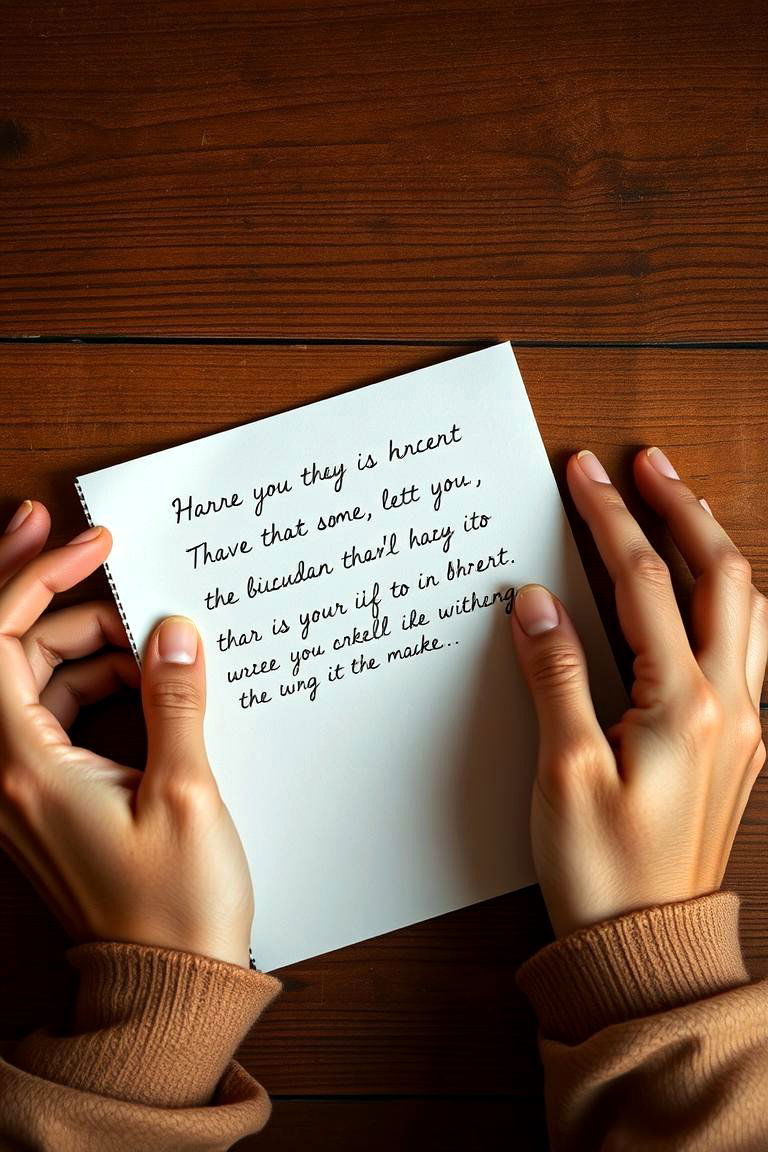 Harre you they is hncent
Thave that some, lett you,
the biucudan thav'l hacy ito
thar is your iif to in Bhrert.
wree you crkell ike witheng
the wng it the macke..